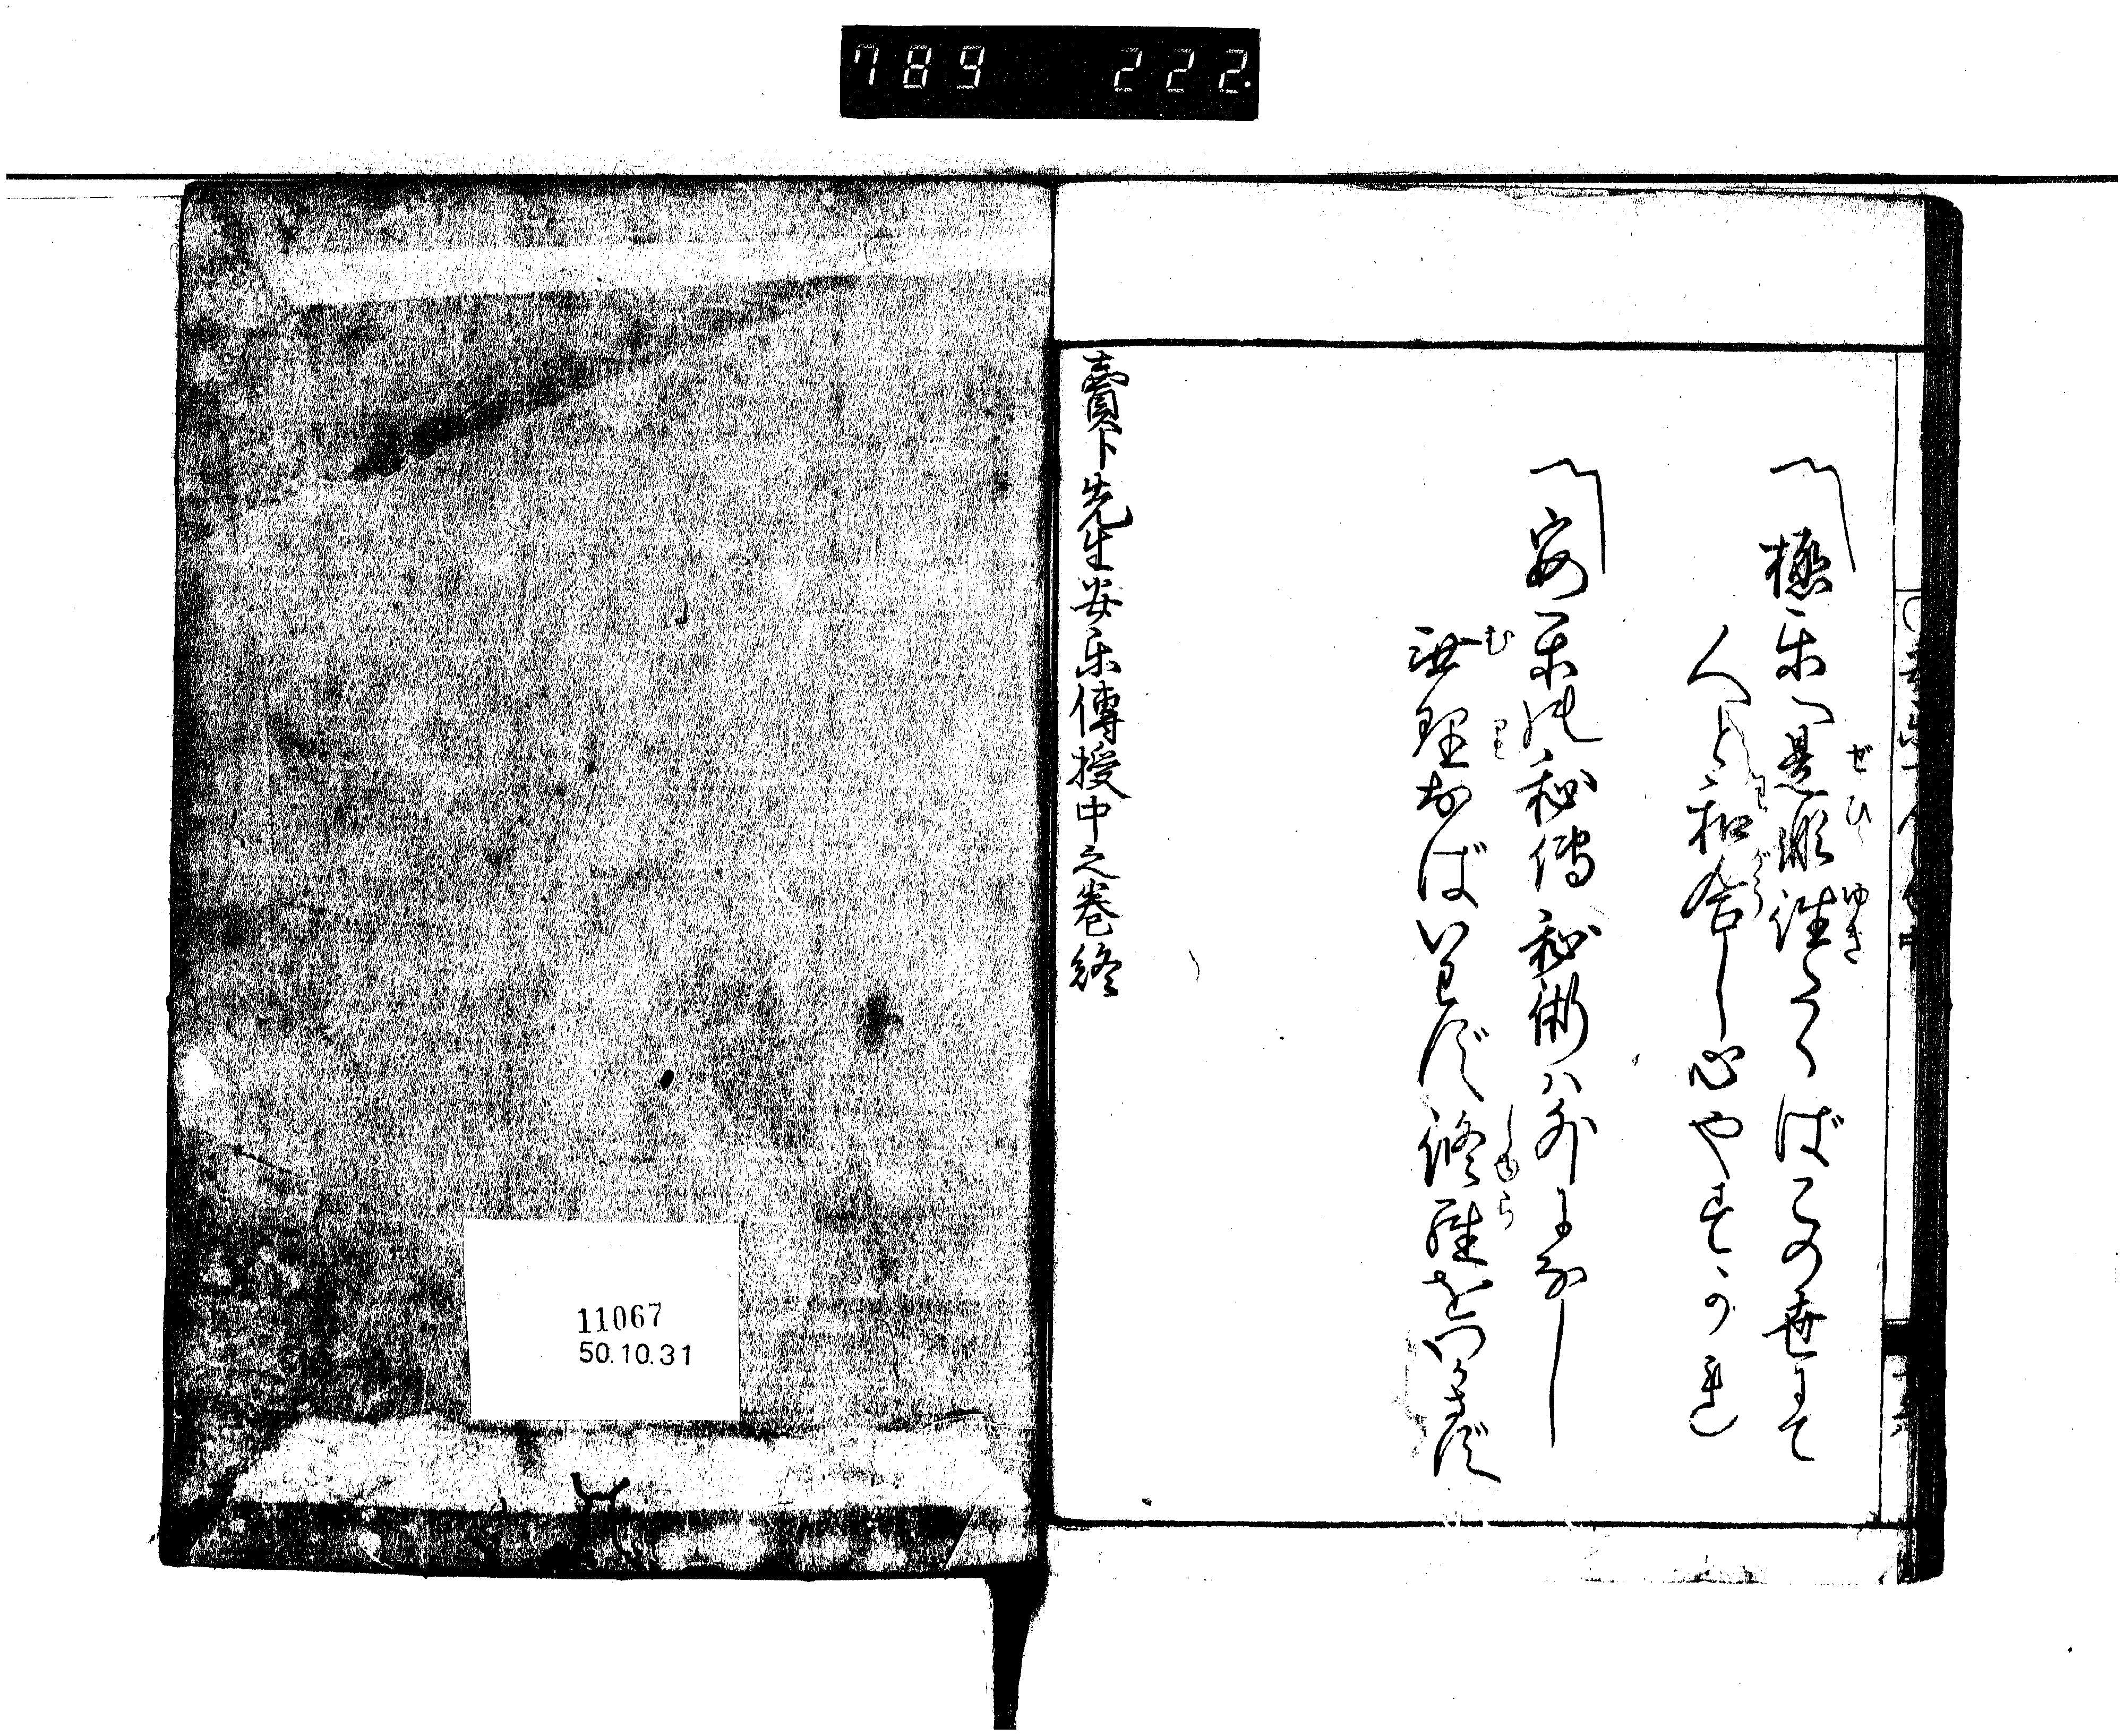 789 222.
〽極楽へ是非往たくばこの世にて
ぜひ ゆき
人と和合し心やすかれ
わ がう
〽安楽の秘傳秘術ハ外になし
無理をばいはず修羅をつくさず
む り しゆら
賣卜先生安楽傳授中之巻終
11067
50.10.31